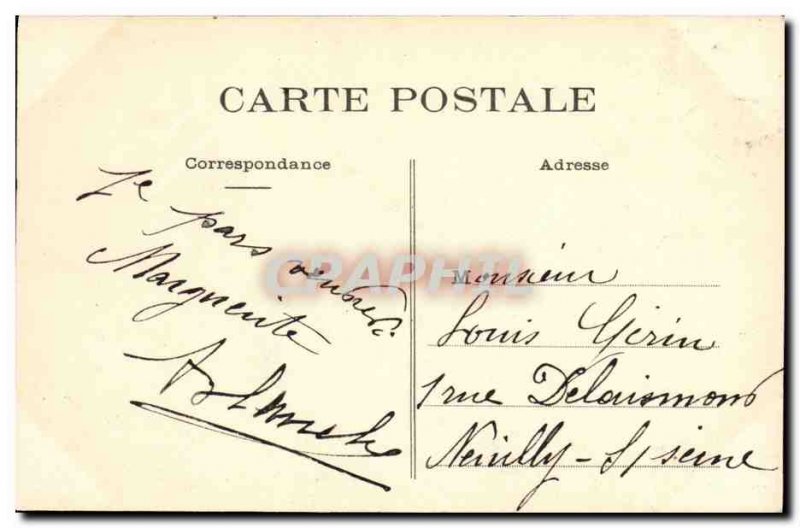 CARTE POSTALE
Correspondance
Je pars vendredi
Marguerite
Blanche
Adresse
Monsieur
Louis Gérin
1 rue Delaismons
Neuilly-s/seine
CRAPHIL